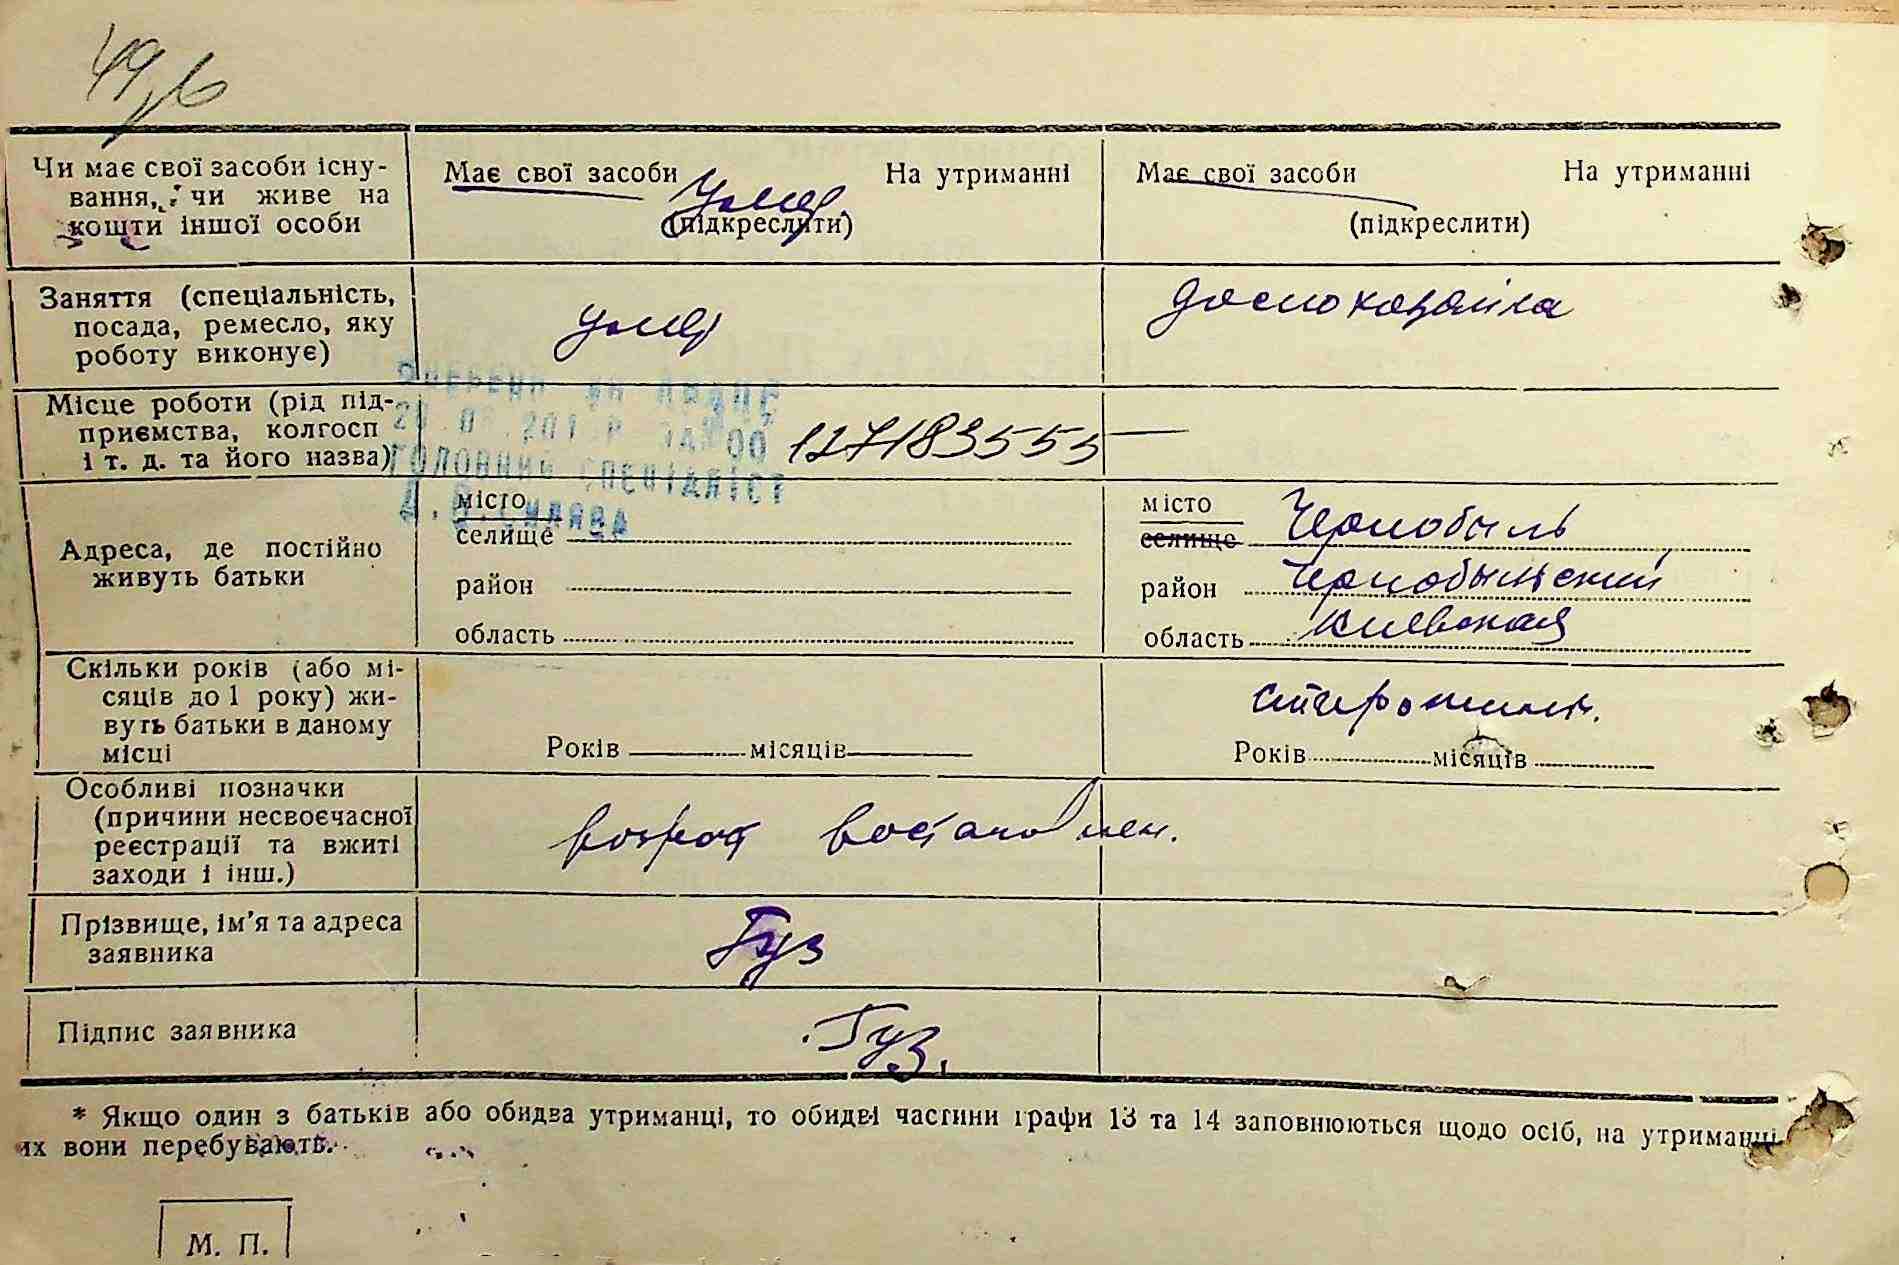 49
Чи має свої засоби існу-
вання, чи живе на
кошти іншої особи
Має свої засоби На утриманні
умер
(підкреслити)
Має свої засоби На утриманні
(підкреслити)
Заняття (спеціальність,
посада, ремесло, яку
роботу виконує)
умер
домохазяйка
Місце роботи (рід під-
приємства, колгосп
і т. д. та його назва)
127183555
—
ГОЛОВНИЙ СПЕЦІАЛІСТ
Адреса, де постійно
живуть батьки
місто
селище
район
область
місто
селище Чернобыль
район Чернобыльский
область Киевская
Скільки років (або мі-
сяців до 1 року) жи-
вуть батьки в даному
місці
Років місяців
старожил.
Років місяців
Особливі позначки
(причини несвоєчасної
реєстрації та вжиті
заходи і інш.)
возраст востановлен.
Прізвище, ім'я та адреса
заявника
Гуз
Підпис заявника
Гуз.
* Якщо один з батьків або обидва утриманці, то обидві частини графи 13 та 14 заповнюються щодо осіб, на утриманні
их вони перебувають.
М. П.